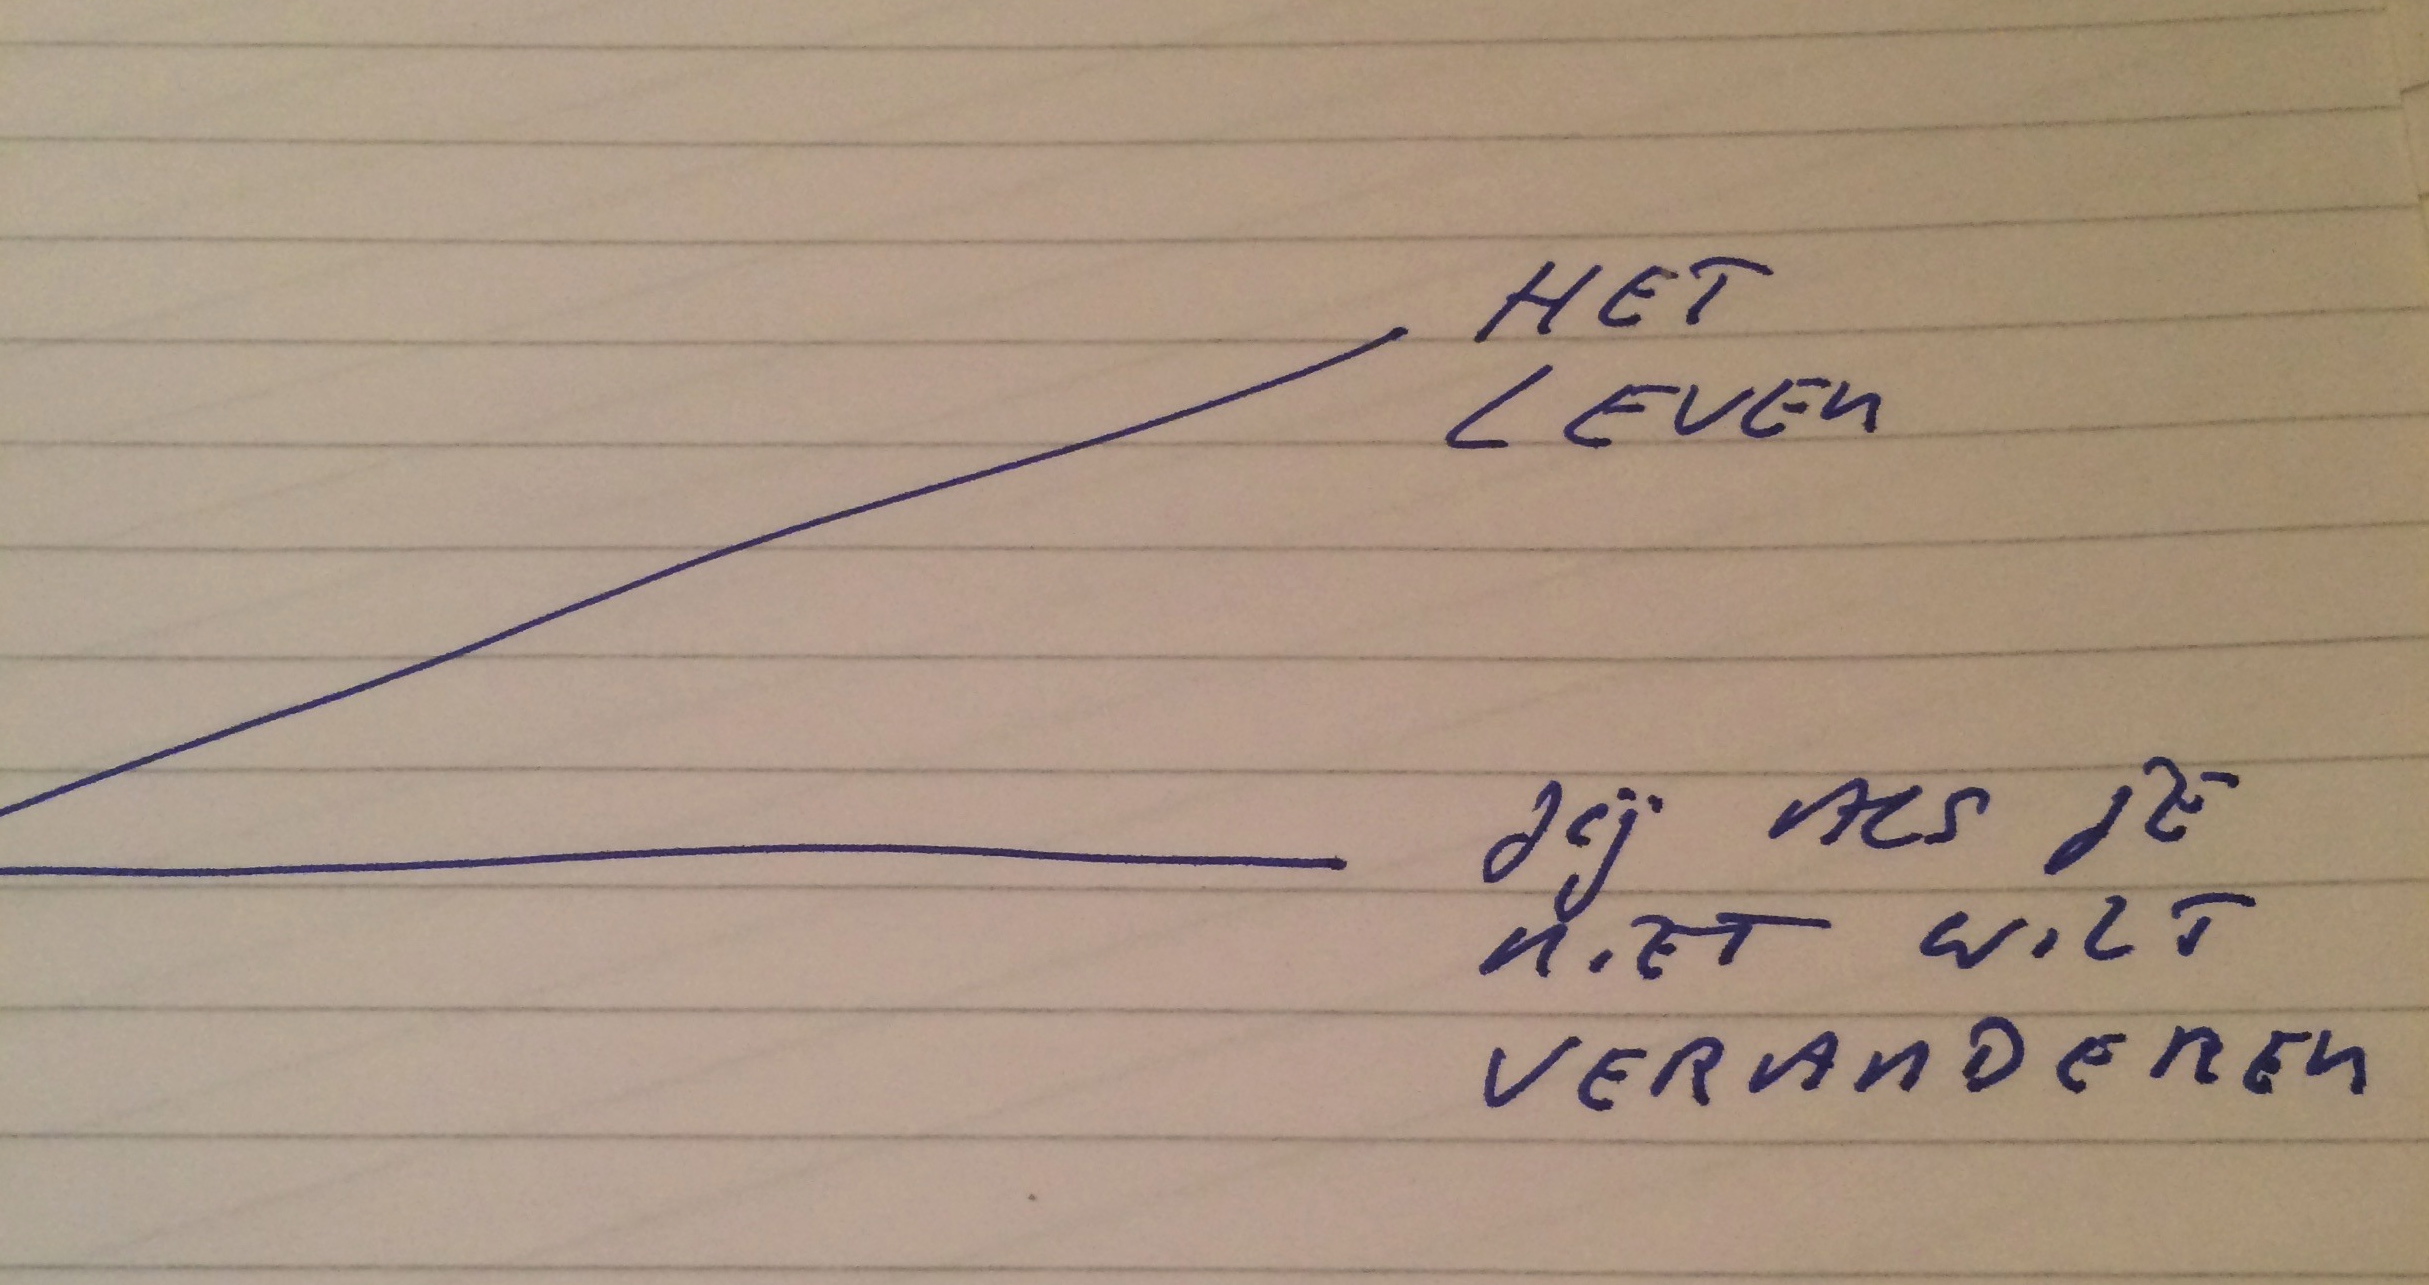 HET
LEVEN
Jij ALS JE
NIET WILT
VERANDEREN